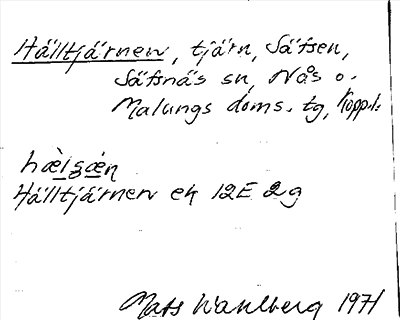 Hälltjärnen, tjärn, Säfsen,
Säfsnäs sn, Nås o.
Malungs doms. tg, Koppb.
Hälltjärnen ek 12E 2g
Mats Wahlberg 1971